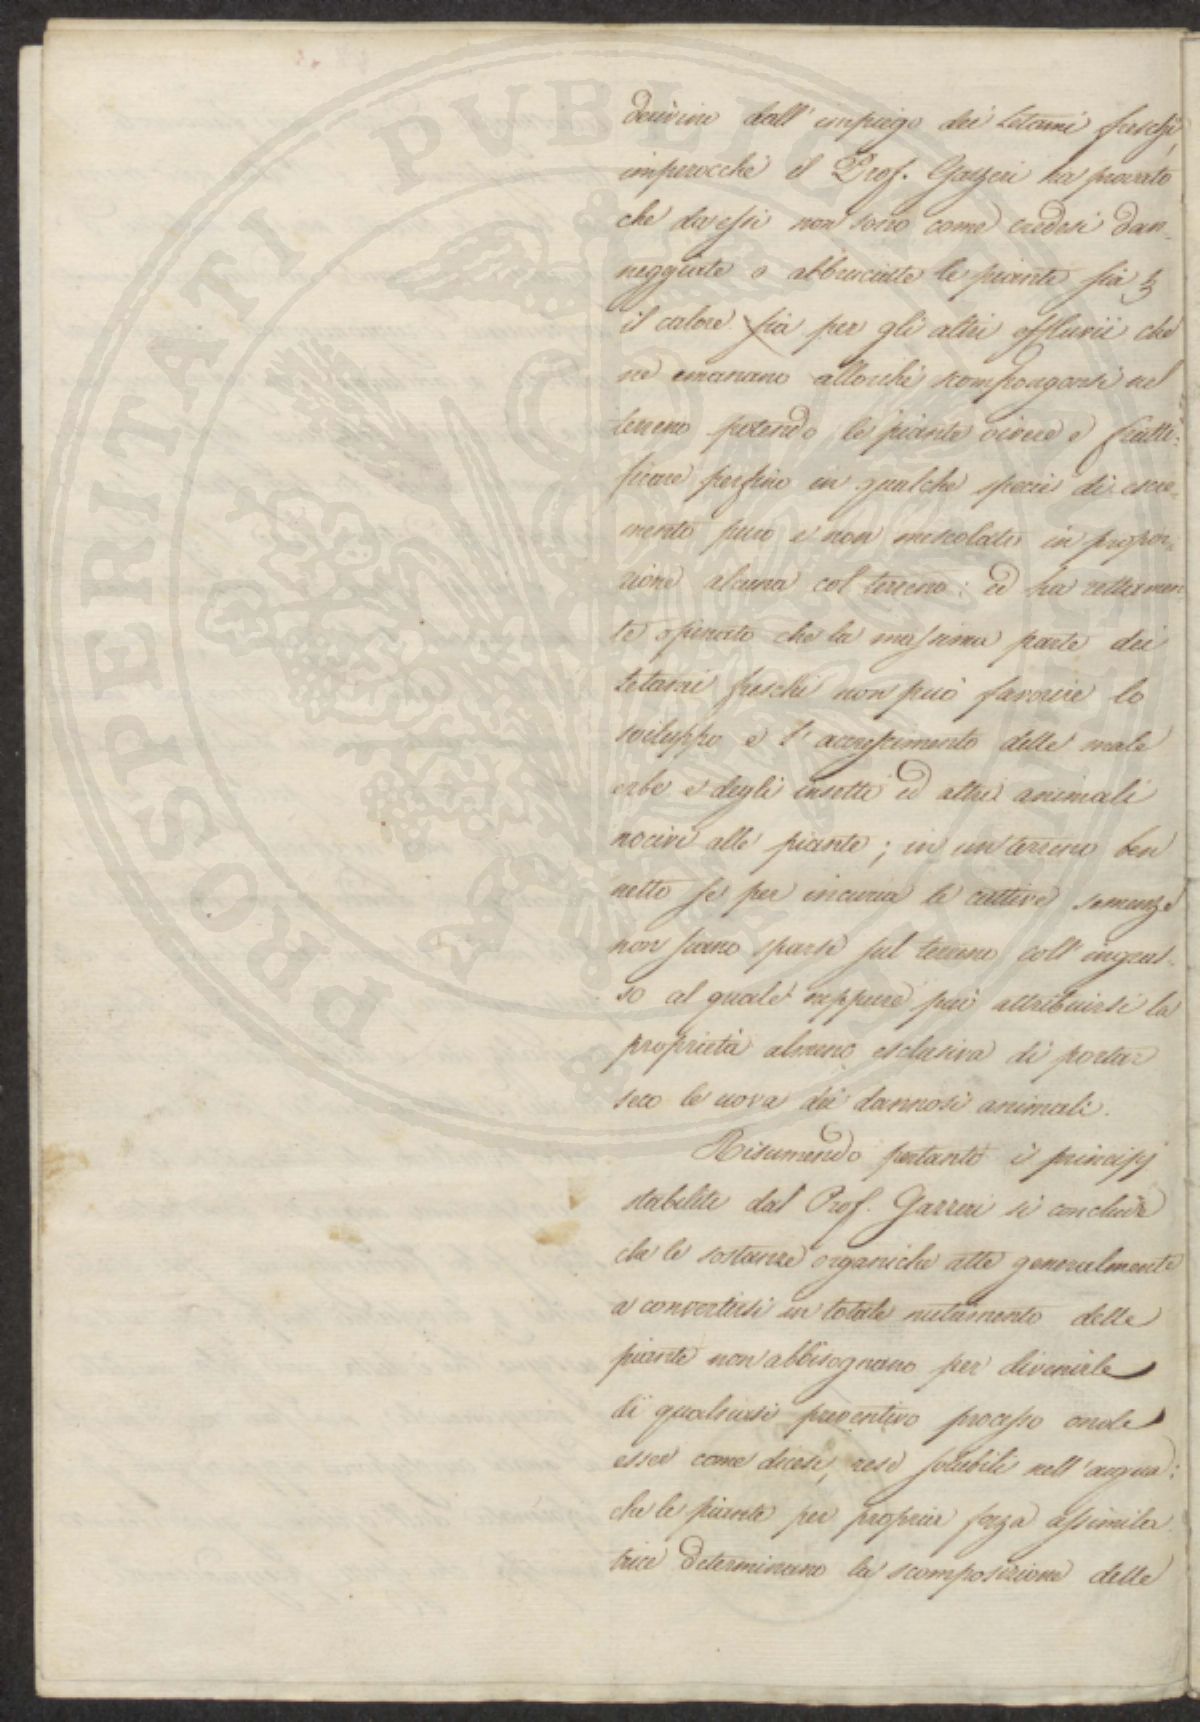 PROSPERITATI PUBLICAE
derivino dall'impiego dei letami freschi,
imperocchè il Prof. Gazzeri ha provato
che da essi non sono come credesi dan-
neggiate o abbruciate le piante sia
il calore sia per gli altri effluvii che
ne emanano allorchè scompongonsi nel
terreno potendo le piante vivere e frutti-
ficare perfino in qualche specie di escre-
mento puro e non mescolato in propor-
zione alcuna col terreno: ed ha rettamen
te opinato che la massima parte dei
letami freschi non può favorire lo
sviluppo e l'accrescimento delle male
erbe e degli insetti ed altri animali
nocivi alle piante; in un terreno ben
netto se per incuria le cattive semenze
non siano sparse sul terreno coll'ingras-
so al quale neppure può attribuirsi la
proprietà almeno esclusiva di portar
seco le uova dei dannosi animali.
Risumendo pertanto i principj
stabiliti dal Prof. Gazzeri si conclude
che le sostanze organiche atte generalmente
a convertirsi in totale nutrimento delle
piante non abbisognano per divenirle
di qualsiasi preventivo processo onde
esser come dicesi, rese solubili nell'acqua:
che le piante per propria forza assimila
trice determinano la scomposizione delle